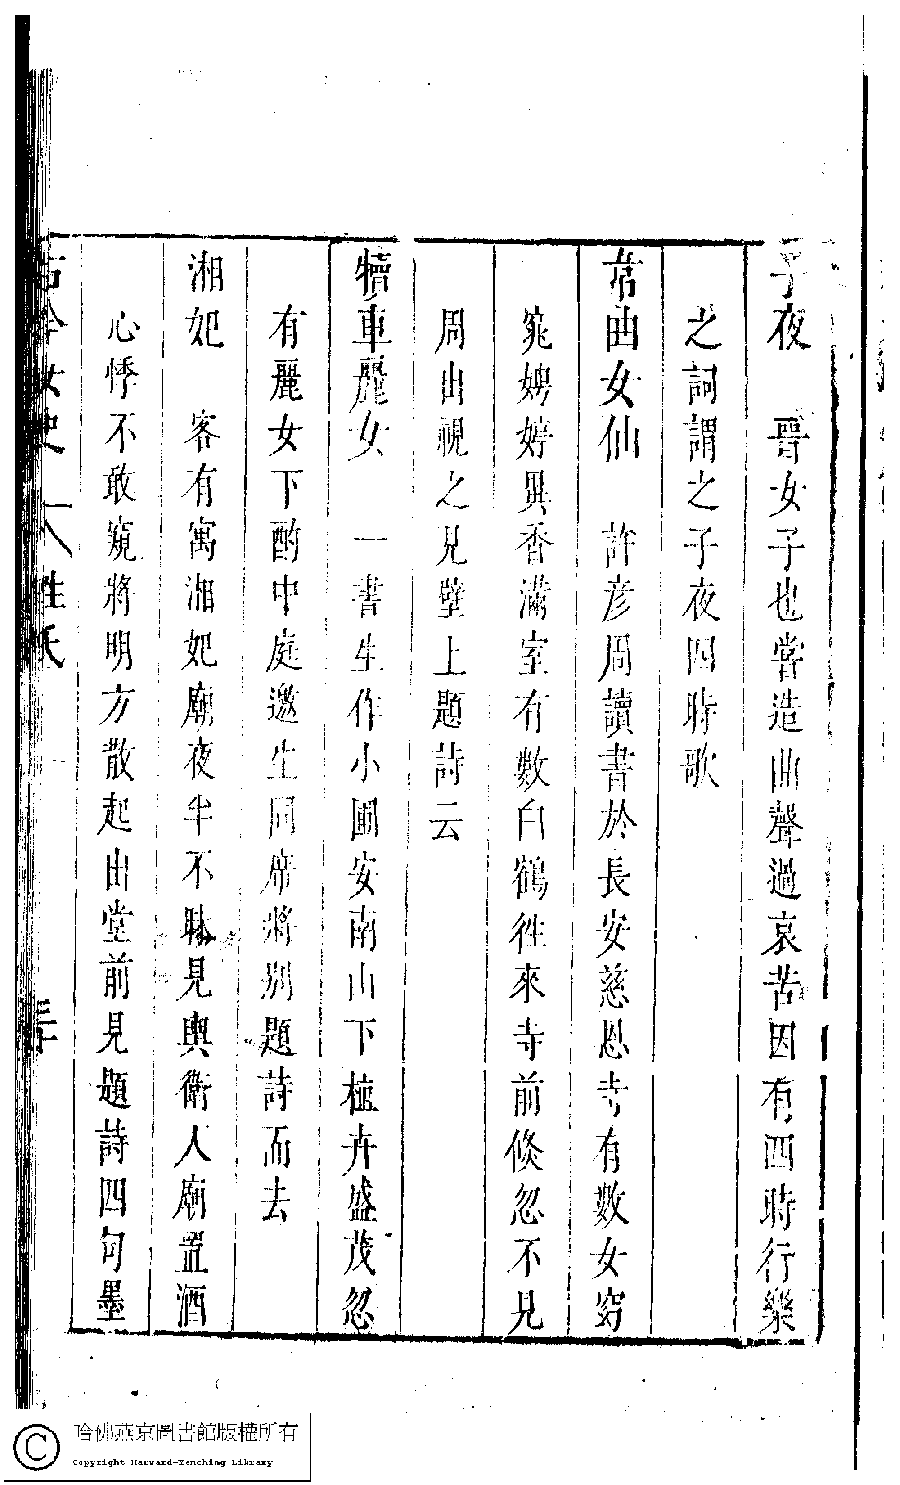 子夜　晉女子也嘗造曲聲過哀苦因有四時行樂
之詞謂之子夜四時歌
韋曲女仙　許彦周讀書於長安慈恩寺有數女窈
窕娉婷異香滿室有數白鶴徃來寺前倐忽不見
周出視之見壁上題詩云
犢車麗女　一書生作小圃安南山下植卉盛茂忽
有麗女下酌中庭邀生同席將别題詩而去
湘妃　客有寓湘妃廟夜半不昧見輿衛入廟置酒
心悸不敢窺將明方散起出堂前見題詩四句墨
古今女史　姓氏
哈佛燕京圖書館版權所有
Copyright Harvard-Yenching Library